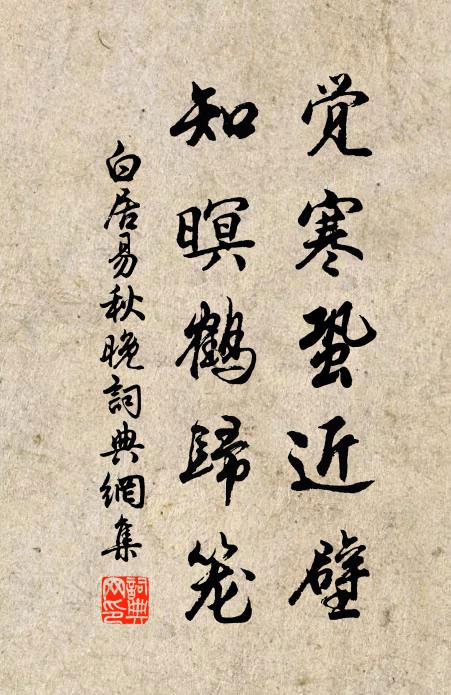 觉寒蛩近壁
知暝鹤归笼
白居易秋晚詞典網集
詞典网印